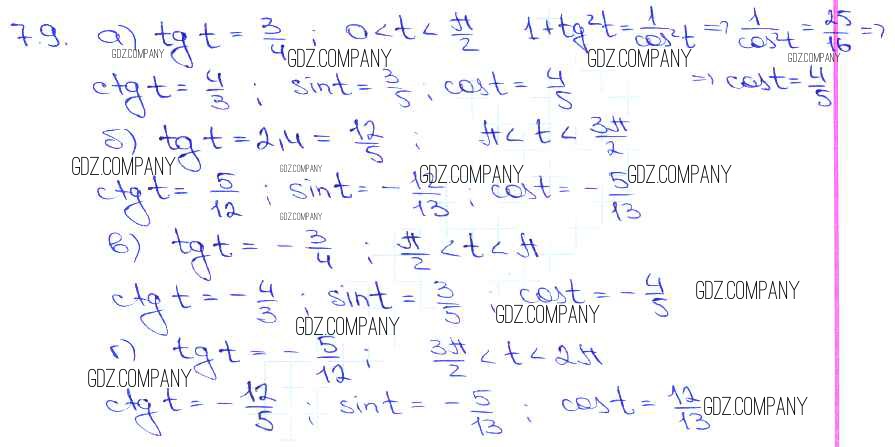 7.9. а) tg t = 3/4 ; 0 < t < π/2 1 + tg²t = 1/cos²t => 1/cos²t = 25/16 =>
GDZ.COMPANY GDZ.COMPANY GDZ.COMPANY GDZ.COMPANY
ctg t = 4/3 ; sin t = 3/5 ; cos t = 4/5 => cos t = 4/5
б) tg t = 2,4 = 12/5 ; π < t < 3π/2
GDZ.COMPANY GDZ.COMPANY GDZ.COMPANY GDZ.COMPANY
ctg t = 5/12 ; sin t = - 12/13 ; cos t = - 5/13
GDZ.COMPANY
в) tg t = - 3/4 ; π/2 < t < π
ctg t = - 4/3 ; sin t = 3/5 ; cos t = - 4/5 GDZ.COMPANY
GDZ.COMPANY GDZ.COMPANY
г) tg t = - 5/12 ; 3π/2 < t < 2π
GDZ.COMPANY
ctg t = - 12/5 ; sin t = - 5/13 ; cos t = 12/13 GDZ.COMPANY